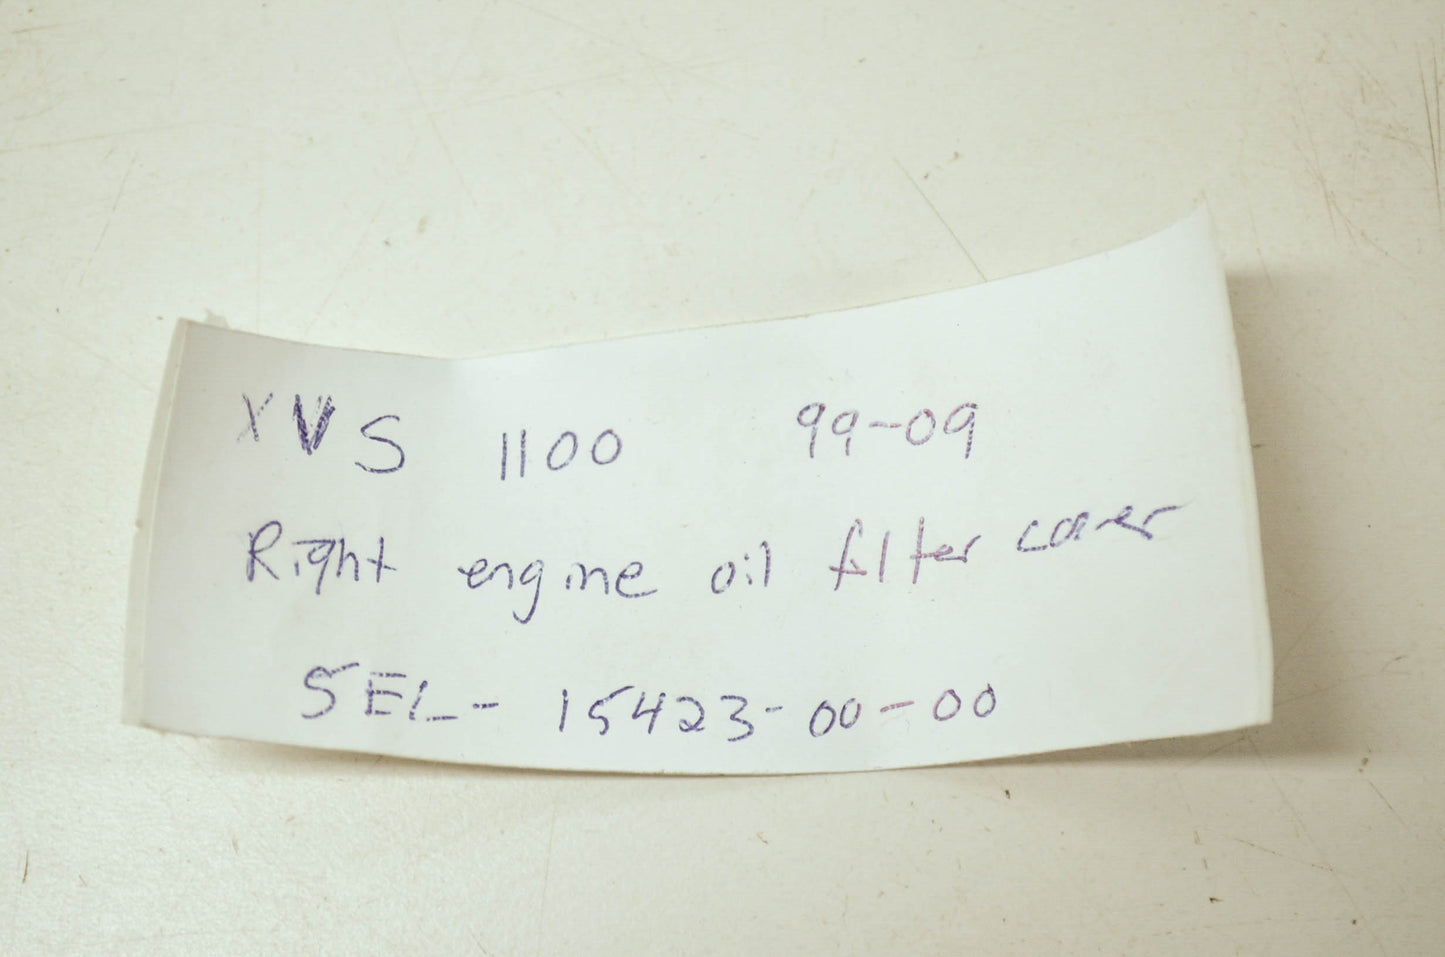 XVS 1100 99-09
Right engine oil filter cover
5EL- 15423-00-00